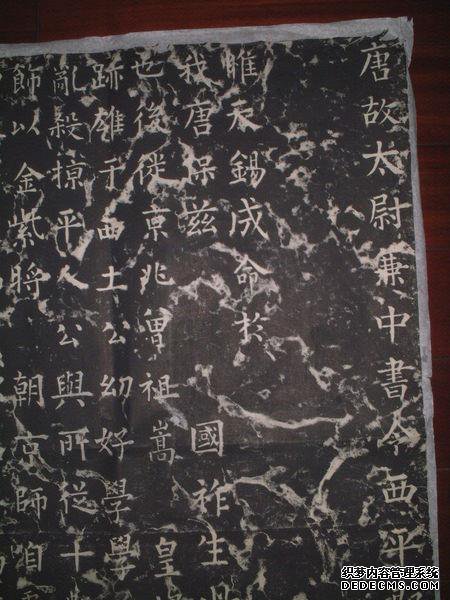 唐故太尉兼中書令西平
惟天錫成命於
我唐保茲 國祚生
也後徙京兆曾祖嵩 皇
跡雄于西土公幼好學學
亂殺掠平人公與所從十
以金紫將 朝京師
织梦内容管理系统
DEDECMS.COM